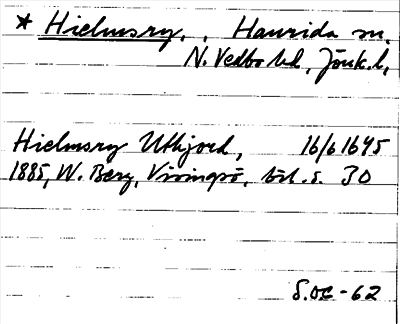 * Hielmsry, Haurida sn.
N. Vedbo hd, Jönk. l,
Hielmsry Uthjord, 16/6 1645
1885, W. Berg, Visingsö, bil. s. 30
S.OC-62